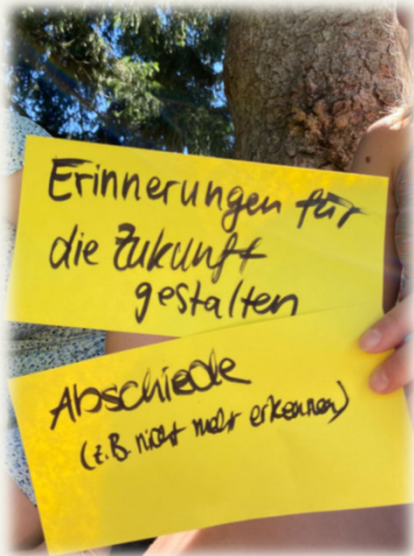 Erinnerungen für
die Zukunft
gestalten
Abschiede
(z.B. nicht mehr erkennen)